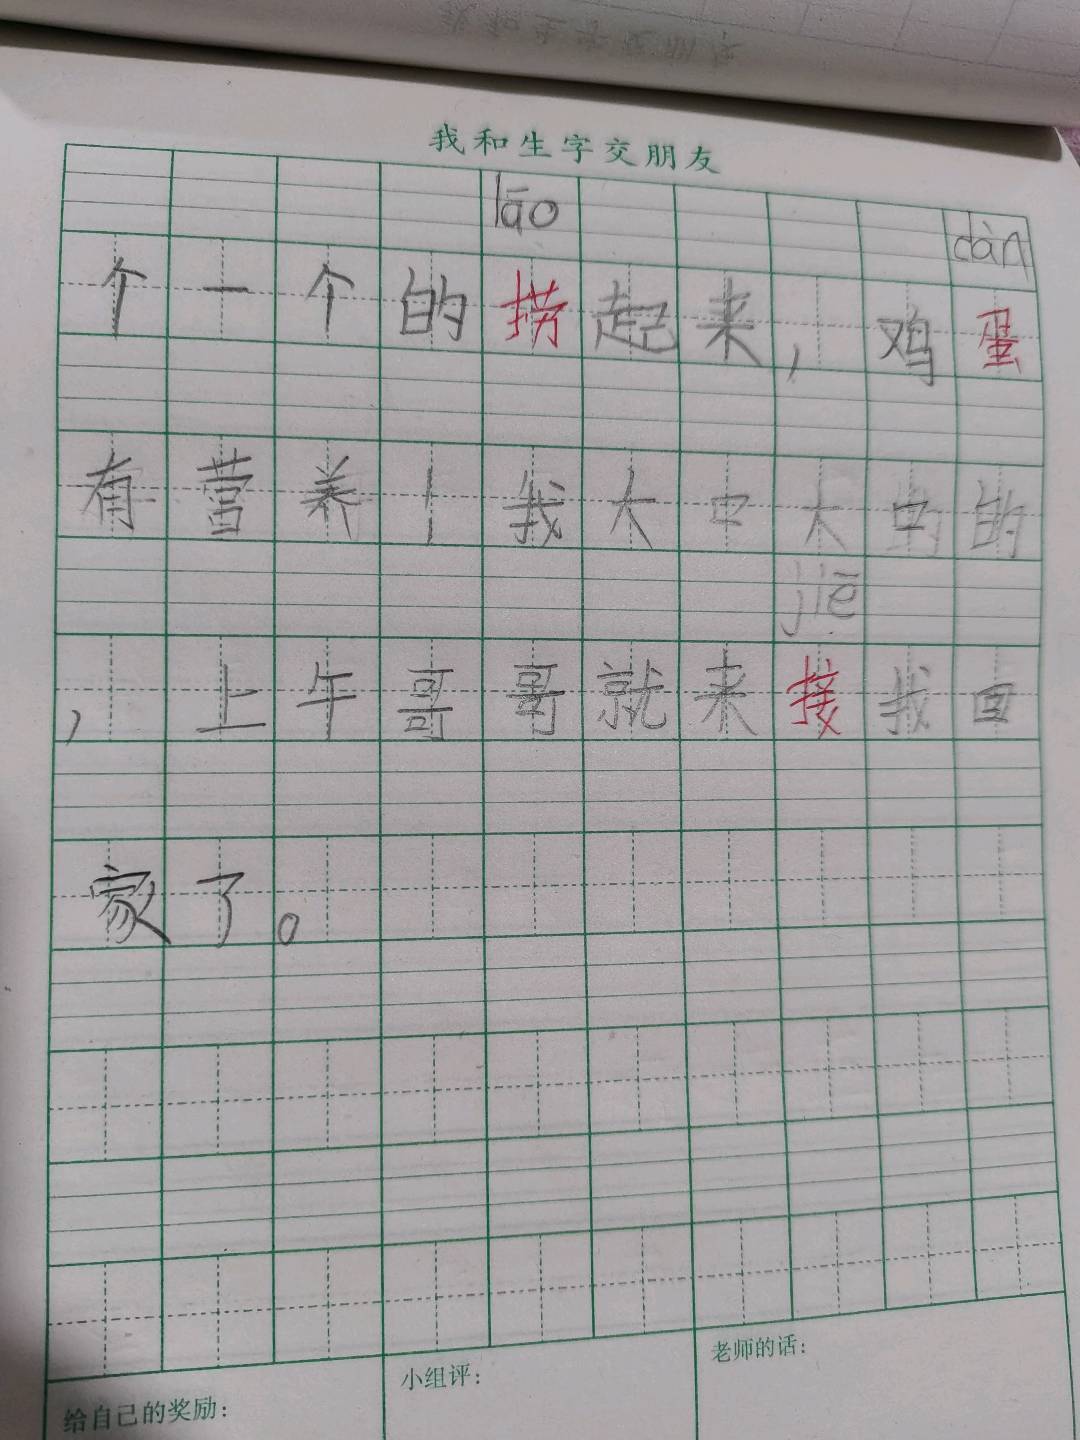 我和生字交朋友
lāo dàn
个一个的捞起来，鸡蛋
有营养！我大口大口的
jiē
，上午哥哥就来接我回
家了。
给自己的奖励：
小组评：
老师的话：